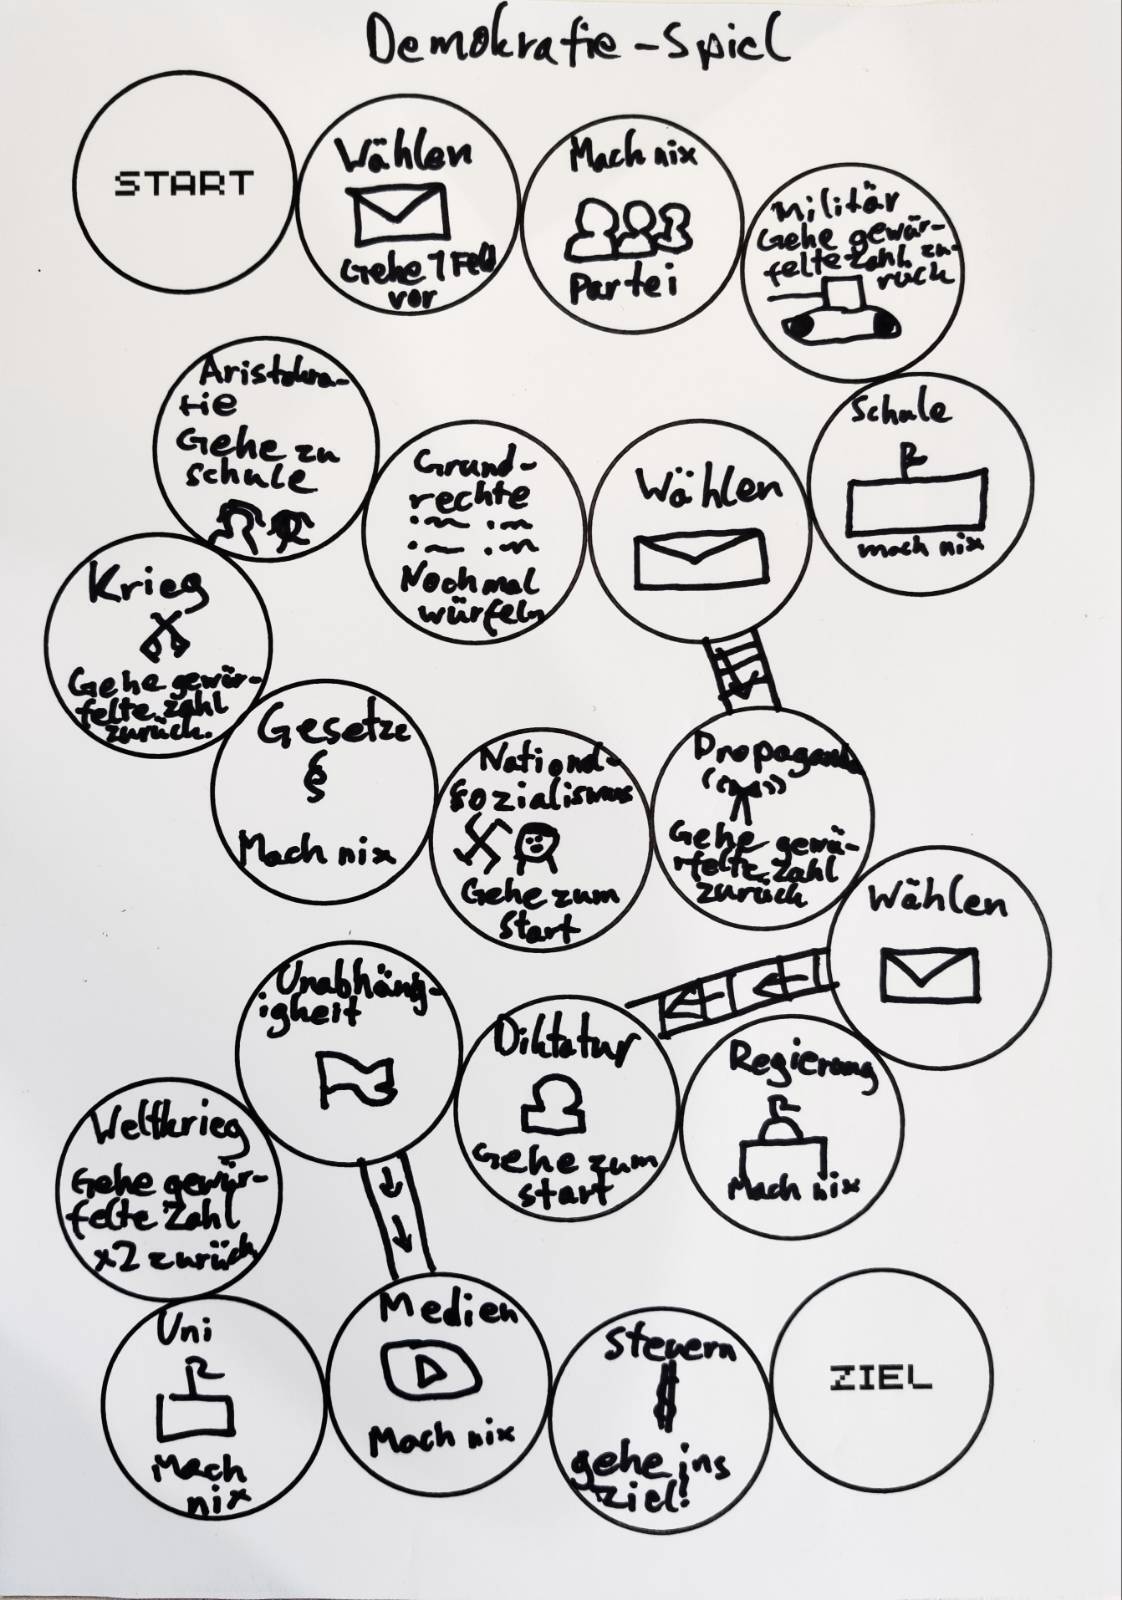 Demokratie-Spiel
START
Wählen
Gehe 1 Feld
vor
Mach nix
Partei
Militär
Gehe gewür-
felte Zahl zu-
rück
Schule
mach nix
Wählen
Grund-
rechte
Nochmal
würfeln
Aristokra-
tie
Gehe zu
schule
Krieg
Gehe gewür-
felte Zahl
zurück.
Gesetze
§
Mach nix
National-
sozialismus
Gehe zum
Start
Propaganda
Gehe gewü-
rfelte Zahl
zurück
Wählen
Regierung
Mach nix
Diktatur
Gehe zum
start
Unabhäng-
igheit
Weltkrieg
Gehe gewür-
felte Zahl
x2 zurück
Uni
Mach
nix
Medien
Mach nix
Steuern
gehe ins
ziel!
ZIEL